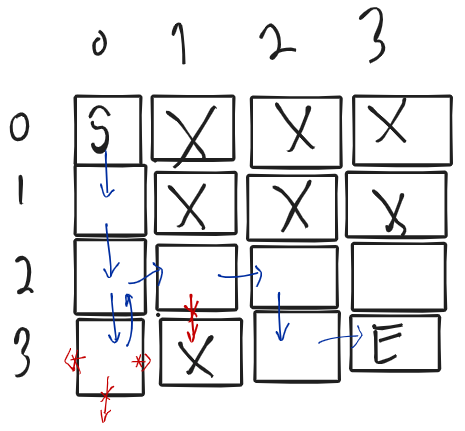 0 1 2 3
0 S X X X
1 X X X
2
3 X E